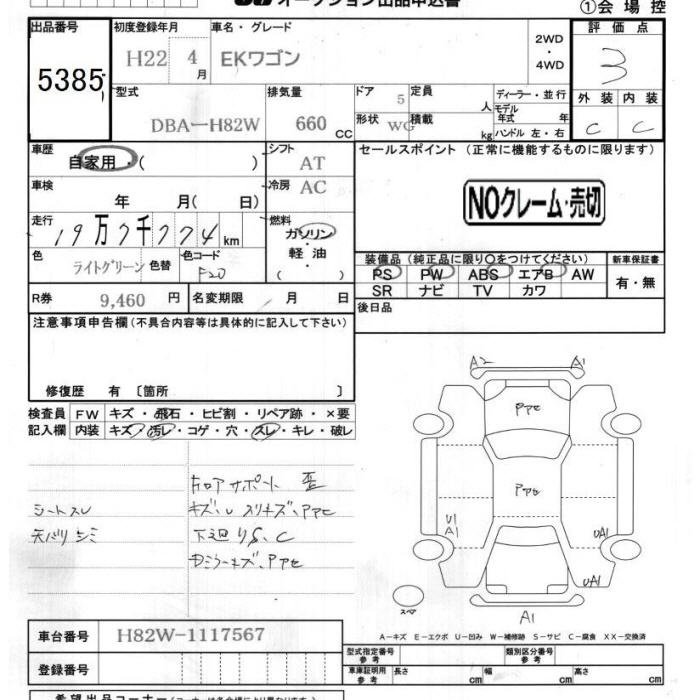 オークション出品申込書
①会場控
出品番号 5385
初度登録年月 H22 4月
車名・グレード EKワゴン
2WD・4WD
評価点 3
外装 C 内装 C
型式 DBA－H82W
排気量 660 CC
ドア 5
形状 WG
定員 人
積載 kg
ディーラー・並行
モデル年式 年
ハンドル 左・右
車歴 自家用・( )
シフト AT
車検 年 月( 日)
冷房 AC
走行 19万7千774km
燃料 ガソリン・軽油 ( )
色 ライトグリーン 色替
色コード F20
R券 9,460 円
名変期限 月 日
セールスポイント (正常に機能するものに限ります)
NOクレーム・売切
装備品 (純正品に限り○をつけてください)
新車保証書 有・無
PS PW ABS エアB AW
SR ナビ TV カワ
後日品
注意事項申告欄 (不具合内容等は具体的に記入して下さい)
修復歴 有 〔箇所 〕
検査員記入欄
FW キズ・飛石・ヒビ割・リペア跡・×要
内装 キズ・汚レ・コゲ・穴・スレ・キレ・破レ
シートスレ
天バリシミ
カロアサポート 歪
キズ、U スリキズ、PPC
下廻りS、C
Dミラーキズ、PPC
A2 A1
PPC
PPC
U1
A1
UA1
UA1
スペア
A1
A－キズ E－エクボ U－凹み W－補修跡 S－サビ C－腐食 XX－交換済
車台番号 H82W-1117567
登録番号
型式指定番号 参考
類別区分番号 参考
車庫証明用 参考 長さ cm 幅 cm 高さ cm
希望出品コーナー